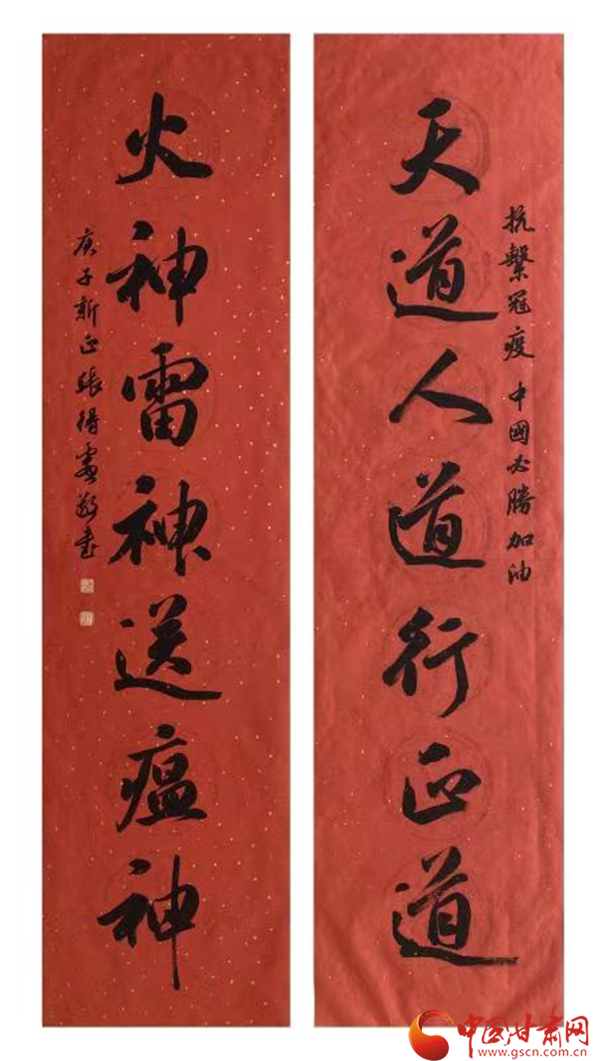 抗擊冠疫 中國必勝加油
天道人道行正道
火神雷神送瘟神
庚子新正張得
敬書
中国甘肃网
www.gscn.com.cn